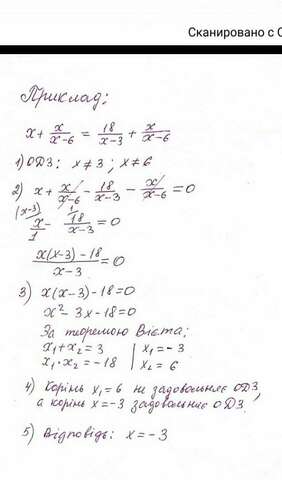 Сканировано с
Приклад:
x + x/(x-6) = 18/(x-3) + x/(x-6)
1) ОДЗ: x ≠ 3 ; x ≠ 6
2) x + x/(x-6) - 18/(x-3) - x/(x-6) = 0
(x-3) x/1 - 1 18/(x-3) = 0
(x(x-3) - 18)/(x-3) = 0
3) x(x-3) - 18 = 0
x² - 3x - 18 = 0
За теоремою Вієта:
x₁ + x₂ = 3 | x₁ = - 3
x₁ · x₂ = - 18 | x₂ = 6
4) Корінь x₁ = 6 не задовольняє ОДЗ,
а корінь x = -3 задовольняє ОДЗ.
5) Відповідь: x = -3